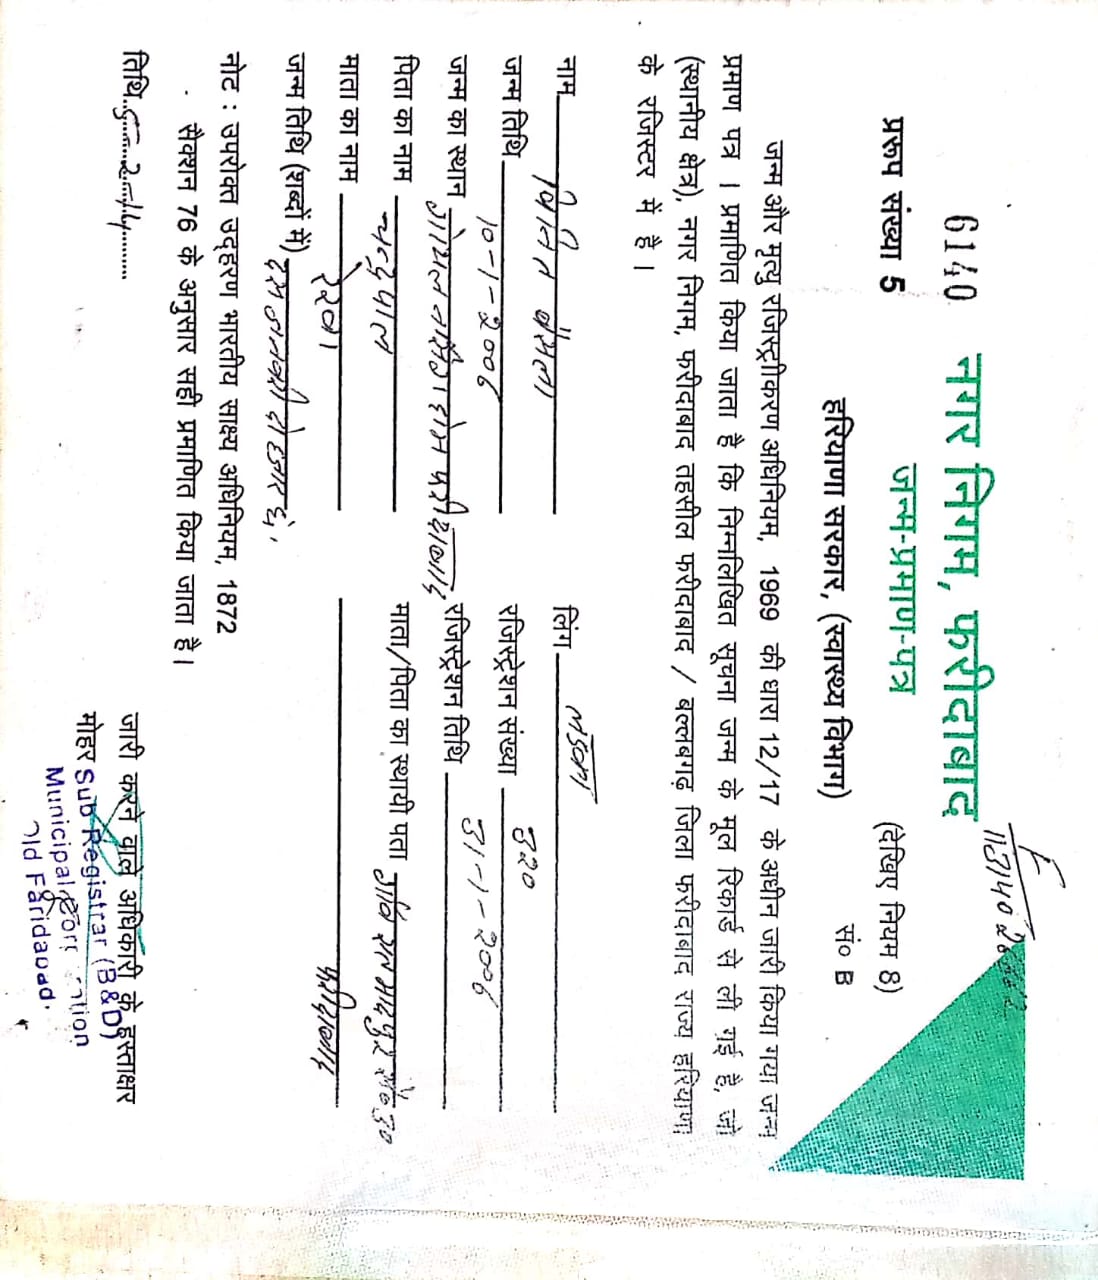 6140 नगर निगम, फरीदाबाद
जन्म-प्रमाण-पत्र
प्ररूप संख्या 5 (देखिए नियम 8)
हरियाणा सरकार, (स्वास्थ्य विभाग) सं० B
जन्म और मृत्यु रजिस्ट्रीकरण अधिनियम, 1969 की धारा 12/17 के अधीन जारी किया गया जन्म
प्रमाण पत्र । प्रमाणित किया जाता है कि निम्नलिखित सूचना जन्म के मूल रिकार्ड से ली गई है, जो
(स्थानीय क्षेत्र), नगर निगम, फरीदाबाद तहसील फरीदाबाद / बल्लबगढ़ जिला फरीदाबाद राज्य हरियाणा
के रजिस्टर में है।
नाम लिंग लडका
जन्म तिथि 10-1-2006 रजिस्ट्रेशन संख्या 320
जन्म का स्थान रजिस्ट्रेशन तिथि 31-1-2006
पिता का नाम माता/पिता का स्थायी पता
माता का नाम फरीदाबाद
जन्म तिथि (शब्दों में) दस जनवरी दो हजार छः
नोट : उपरोक्त उद्हरण भारतीय साक्ष्य अधिनियम, 1872
सैक्शन 76 के अनुसार सही प्रमाणित किया जाता है।
तिथि
जारी करने वाले अधिकारी के हस्ताक्षर
मोहर Sub Registrar (B&D)
Municipal
Old Faridabad.